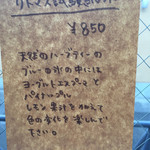 ¥850
天然のハーブティーの
ブルーの氷の中には
ヨーグルトエスプーマ
と
パイナップル
レモン果汁を加えて
色の変化を楽しんで
下さい。